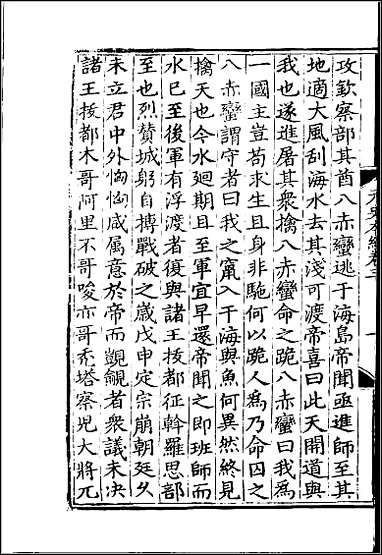 元史本紀卷三 一
攻欽察部其酋八赤蠻逃于海島帝聞亟進師至其
地適大風刮海水去其淺可渡帝喜曰此天開道與
我也遂進屠其衆擒八赤蠻命之跪八赤蠻曰我爲
一國主豈苟求生且身非駞何以跪人爲乃命囚之
八赤蠻謂守者曰我之竄入于海與魚何異然終見
擒天也今水廻期且至軍宜早還帝聞之即班師而
水已至後軍有浮渡者復與諸王拔都征斡羅思部
至也烈贊城躬自搏戰破之歲戊申定宗崩朝廷久
未立君中外恟恟咸屬意於帝而覬覦者衆議未决
諸王拔都木哥阿里不哥唆亦哥禿塔察兒大將兀